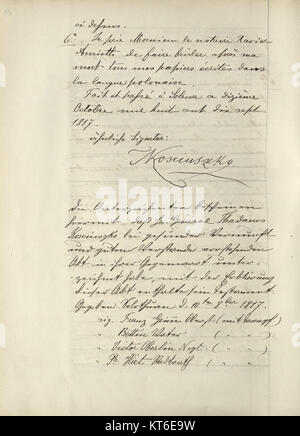 ci dessus.
6° Je prie Monsieur le notaire Xavier
Amiet de faire brûler après ma
mort tous mes papiers écrites dans
la langue polonaise.
Fait et passé à Soleure ce dizième
Octobre mil huit cent dix sept
1817.
Kosciuszko
Die Unterzeichneten bescheinen
hiermit daß Herr General Thadaeus
Kosciuszko bei gesunder Vernunft
und guten Verstande vorstehenden
Akt in ihrer Gegenwart unter-
zeichnet habe, mit der Erklärung
dieser Akt enthalte sein Testament.
Gegeben Solothurn d. 10ten 8ber 1817.
sig. Franz Grimm
" Victor Oberlin Negt. ( " )
alamy
Image ID: KT6E9W
www.alamy.com